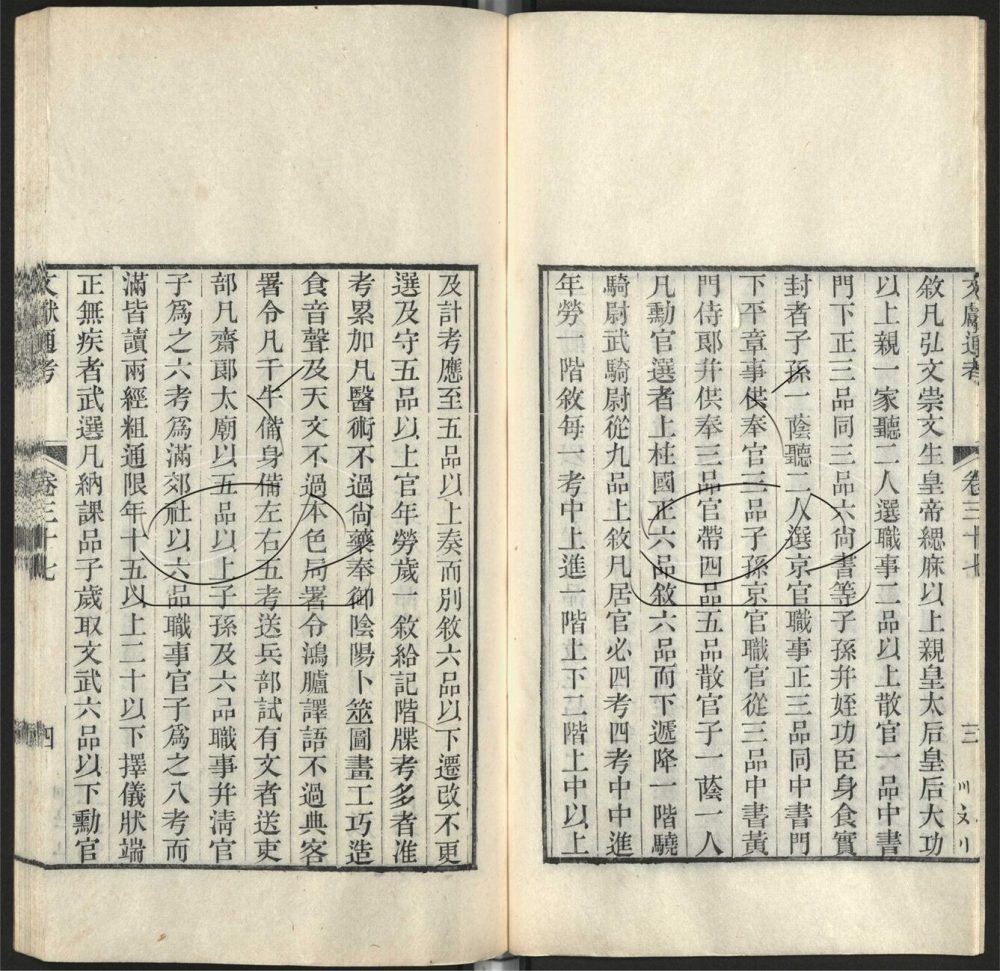 文獻通考 卷三十七 三
敘凡弘文崇文生皇帝緦麻以上親皇太后皇后大功
以上親一家聽二人選職事二品以上散官一品中書
門下正三品同三品六尚書等子孫并姪功臣身食實
封者子孫一蔭聽二人選京官職事正三品同中書門
下平章事供奉官三品子孫京官職官從三品中書黃
門侍郎并供奉三品官帶四品五品散官子一蔭一人
凡勳官選者上柱國正六品敘六品而下遞降一階驍
騎尉武騎尉從九品上敘凡居官必四考四考中中進
年勞一階敘每一考中上進一階上下二階上中以上
及計考應至五品以上奏而別敘六品以下遷改不更
選及守五品以上官年勞歲一敘給記階牒考多者准
考累加凡醫術不過尚藥奉御陰陽卜筮圖畫工巧造
食音聲及天文不過本色局署令鴻臚譯語不過典客
署令凡千牛備身備左右五考送兵部試有文者送吏
部凡齋郎太廟以五品以上子孫及六品職事并清官
子爲之六考爲滿郊社以六品職事官子爲之八考而
滿皆讀兩經粗通限年十五以上二十以下擇儀狀端
正無疾者武選凡納課品子歲取文武六品以下勳官
文獻通考 卷三十七 四